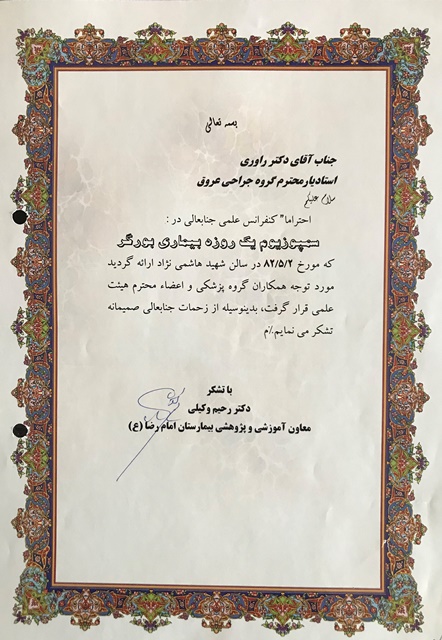 بسمه تعالی
جناب آقای دکتر راوری
استادیار محترم گروه جراحی عروق
سلام علیکم
احتراما" کنفرانس علمی جنابعالی در :
سمپوزیوم یک روزه بیماری بورگر
که مورخ ۸۲/۵/۲ در سالن شهید هاشمی نژاد ارائه گردید
مورد توجه همکاران گروه پزشکی و اعضاء محترم هیئت
علمی قرار گرفت، بدینوسیله از زحمات جنابعالی صمیمانه
تشکر می نمایم٪م
با تشکر
دکتر رحیم وکیلی
معاون آموزشی و پژوهشی بیمارستان امام رضا (ع)